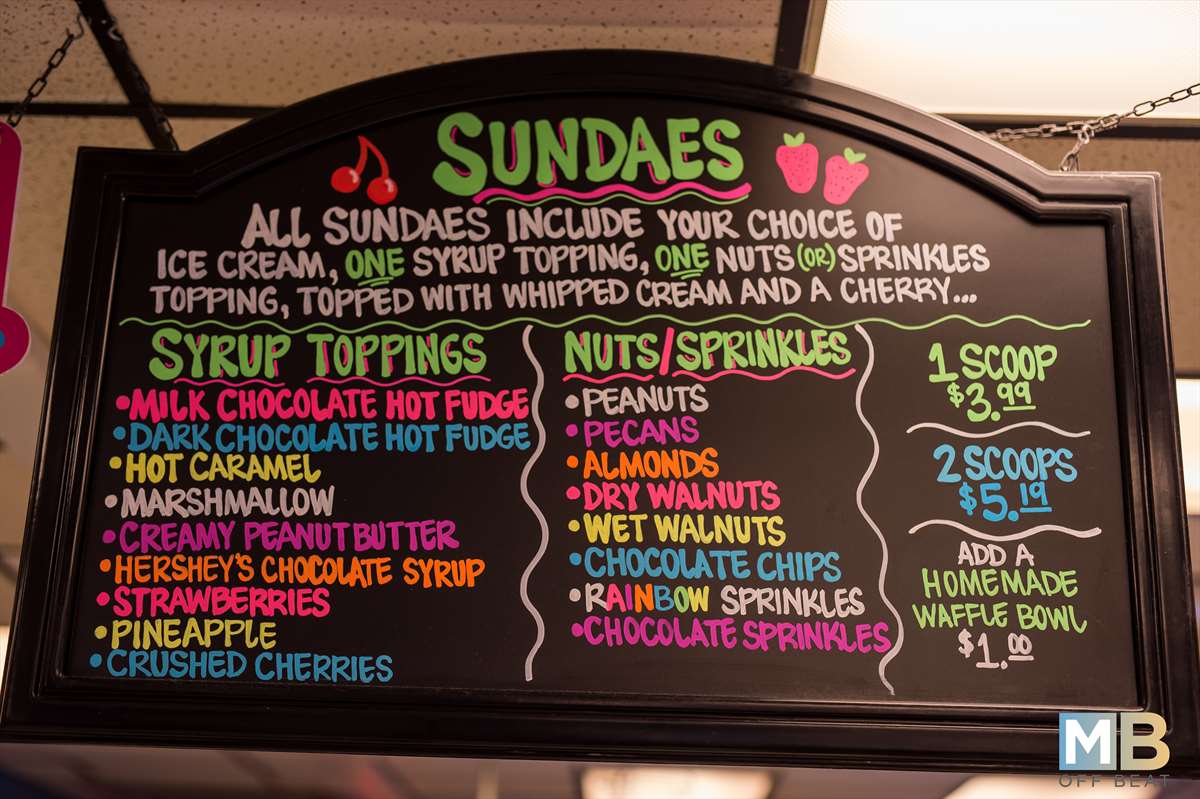 SUNDAES
ALL SUNDAES INCLUDE YOUR CHOICE OF
ICE CREAM, ONE SYRUP TOPPING, ONE NUTS (OR) SPRINKLES
TOPPING, TOPPED WITH WHIPPED CREAM AND A CHERRY...
SYRUP TOPPINGS
•MILK CHOCOLATE HOT FUDGE
•DARK CHOCOLATE HOT FUDGE
•HOT CARAMEL
•MARSHMALLOW
•CREAMY PEANUT BUTTER
•HERSHEY'S CHOCOLATE SYRUP
•STRAWBERRIES
•PINEAPPLE
•CRUSHED CHERRIES
NUTS/SPRINKLES
•PEANUTS
•PECANS
•ALMONDS
•DRY WALNUTS
•WET WALNUTS
•CHOCOLATE CHIPS
•RAINBOW SPRINKLES
•CHOCOLATE SPRINKLES
1 SCOOP
$3.99
2 SCOOPS
$5.19
ADD A
HOMEMADE
WAFFLE BOWL
$1.00
MB
OFF BEAT